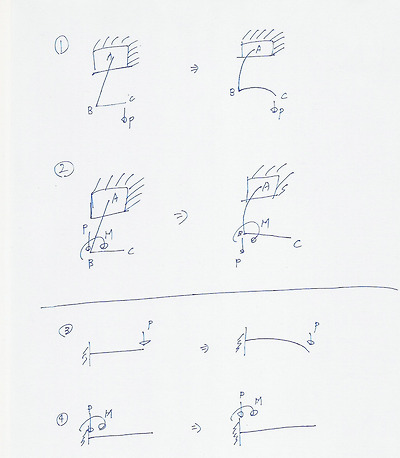 ① A B C P ⇒ A B C P
② A P M B C ⇒ A M B P C
③ P ⇒ P
④ P M ⇒ P M